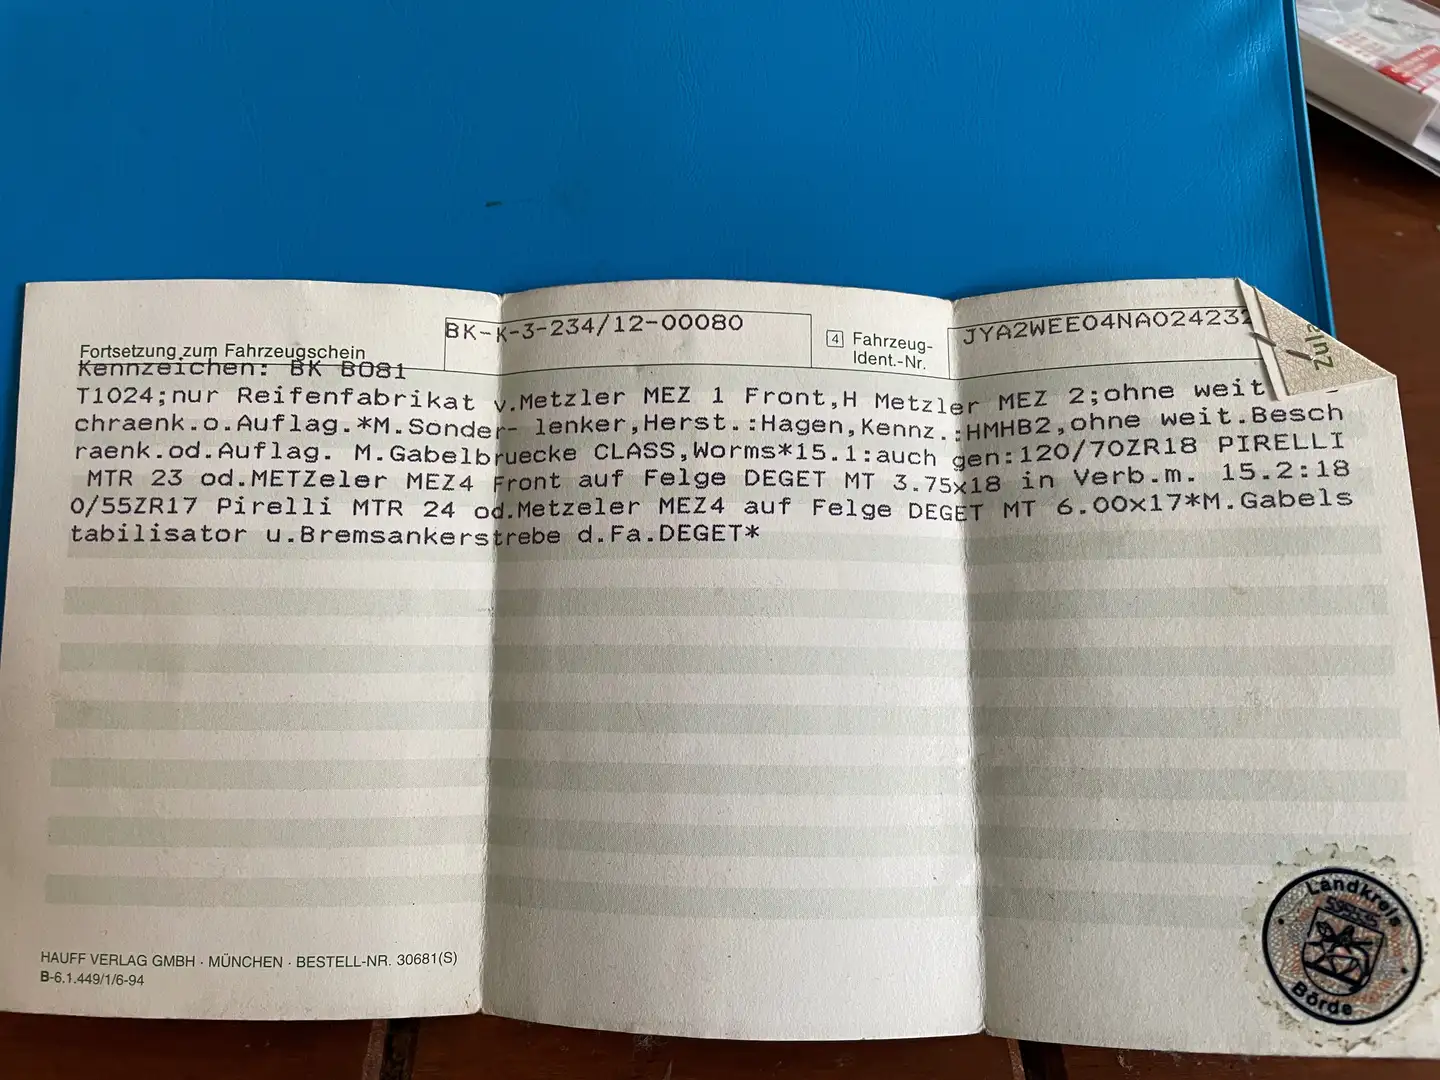 BK-K-3-234/12-00080
4 Fahrzeug-
Ident.-Nr.
JYA2WEE04NA024232
Fortsetzung zum Fahrzeugschein
Kennzeichen: BK BO81
T1024;nur Reifenfabrikat v.Metzler MEZ 1 Front,H Metzler MEZ 2;ohne weit
chraenk.o.Auflag.*M.Sonder- lenker,Herst.:Hagen,Kennz.:HMHB2,ohne weit.Besch
raenk.od.Auflag. M.Gabelbruecke CLASS,Worms*15.1:auch gen:120/70ZR18 PIRELLI
MTR 23 od.METZeler MEZ4 Front auf Felge DEGET MT 3.75x18 in Verb.m. 15.2:18
0/55ZR17 Pirelli MTR 24 od.Metzeler MEZ4 auf Felge DEGET MT 6.00x17*M.Gabels
tabilisator u.Bremsankerstrebe d.Fa.DEGET*
HAUFF VERLAG GMBH · MÜNCHEN · BESTELL-NR. 30681(S)
B-6.1.449/1/6-94
Landkreis
Börde